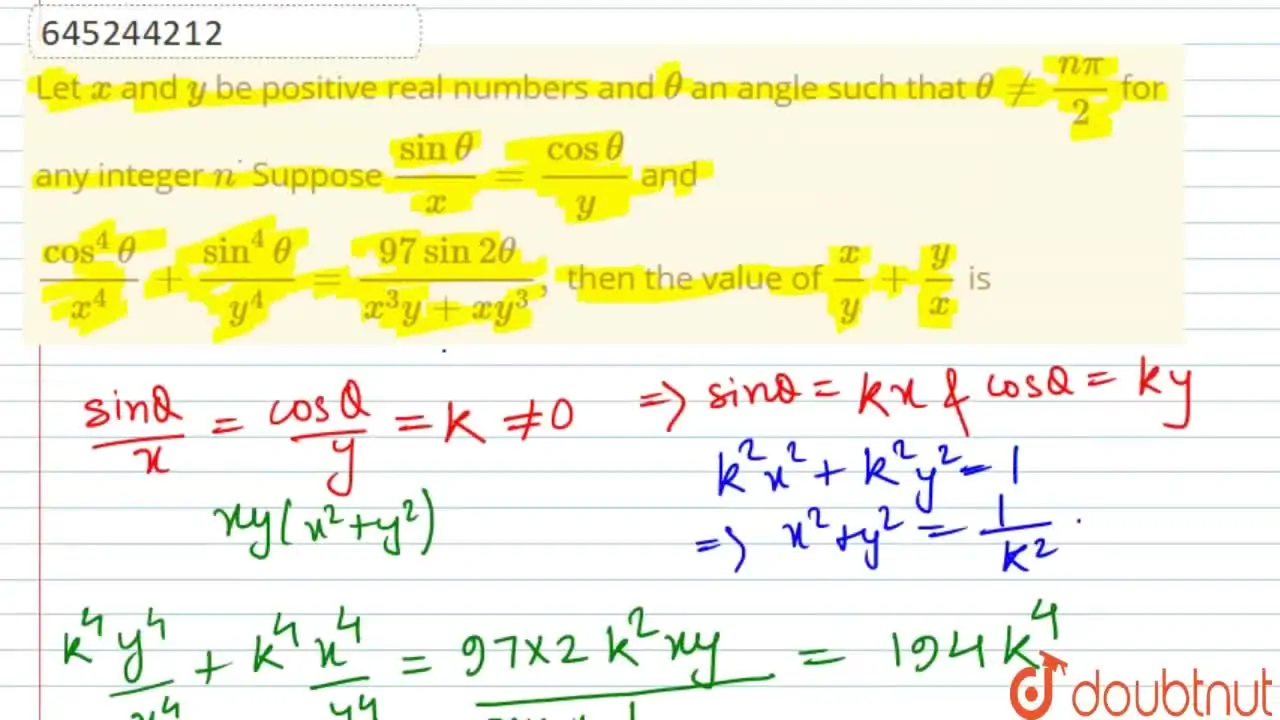 645244212
Let x and y be positive real numbers and θ an angle such that θ ≠ nπ/2 for
any integer n Suppose sin θ/x = cos θ/y and
cos⁴ θ/x⁴ + sin⁴ θ/y⁴ = 97 sin 2θ/x³y + xy³, then the value of x/y + y/x is
sinθ/x = cosθ/y = k ≠ 0 ⇒ sinθ = kx & cosθ = ky
k²x² + k²y² = 1
xy(x²+y²)
⇒ x²+y² = 1/k².
k⁴y⁴/x⁴ + k⁴x⁴/y⁴ = 97×2 k²xy = 194k⁴
doubtnut